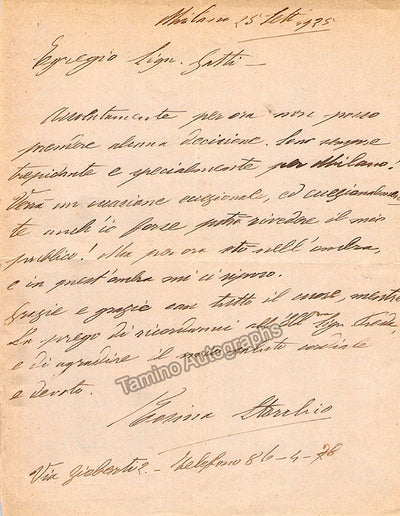 Milano 25 Sett. 1935
Egregio Sign. Gatti -
Assolutamente per ora non posso
prendere alcuna decisione. Sono sempre
trepidante e specialmente per Milano!
Verrà un occasione eccezionale, ed eccezionalmen-
te anch'io forse potrò rivedere il mio
pubblico! Ma per ora sto nell'ombra,
e in quest'ombra mi ci riposo.
Grazie e grazie con tutto il cuore, mentre
La prego di ricordarmi all' Sign.
e di agradire il saluto cordiale
e devoto.
Rosina Storchio
Via Gioberti 2. - Telefono 86-4-78
Tamino Autographs